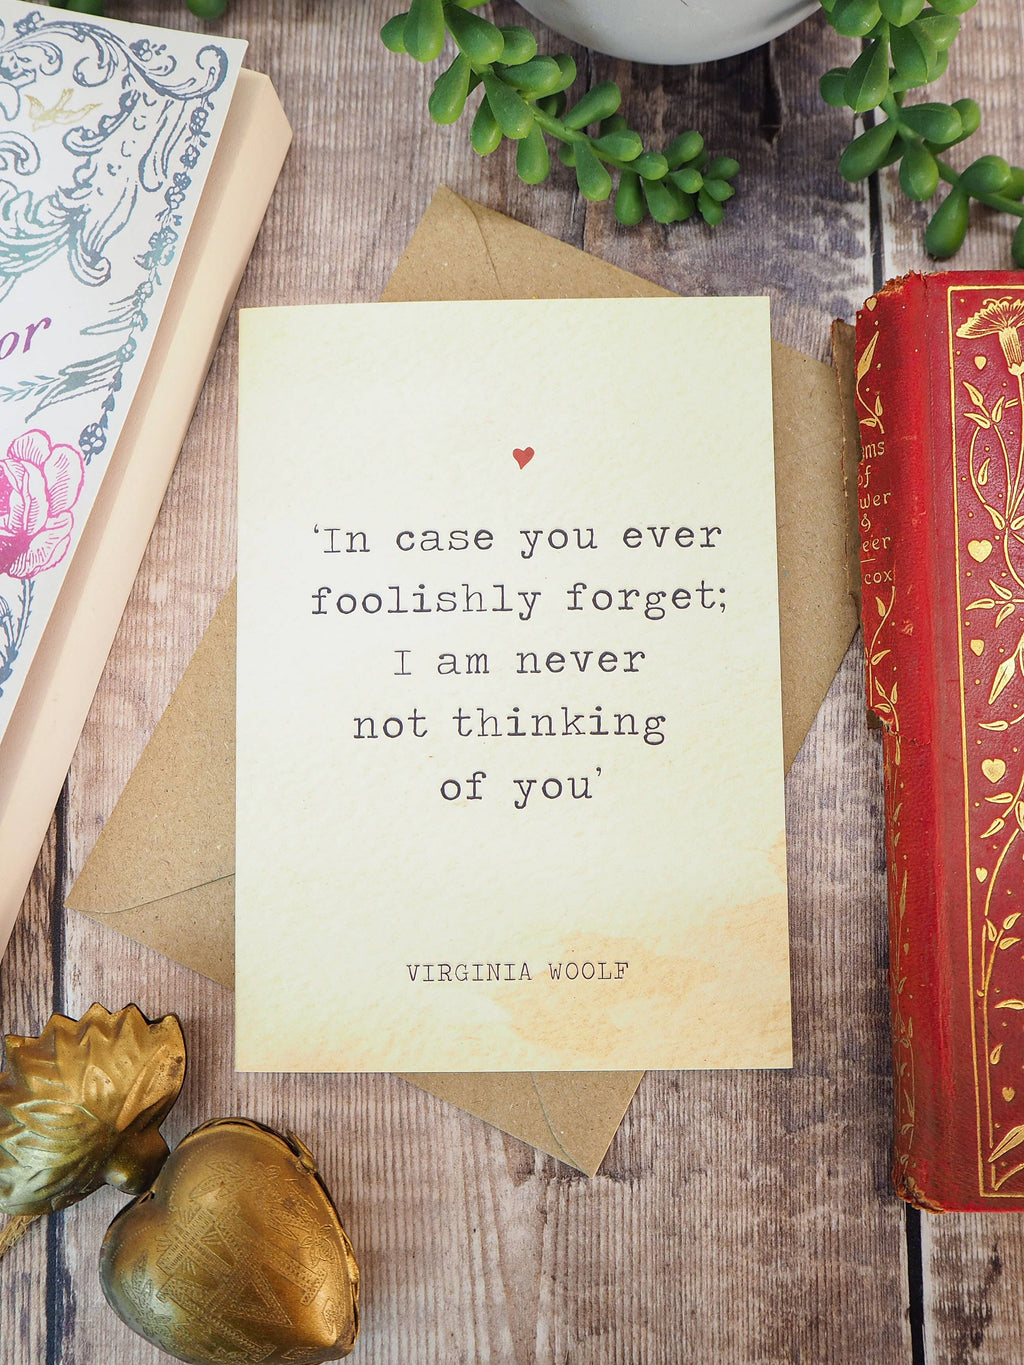 ‘In case you ever
foolishly forget;
I am never
not thinking
of you’
VIRGINIA WOOLF
of
&